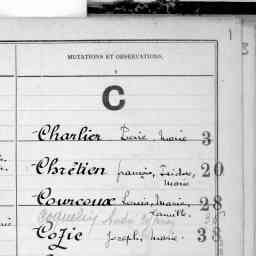 MUTATIONS ET OBSERVATIONS.
C
Charlier Marie 3
Chrétien françois, Isidore, 20
Marie
Courcoux Louis, Marie, 28
Camille
Cozic Joseph, Marie. 38